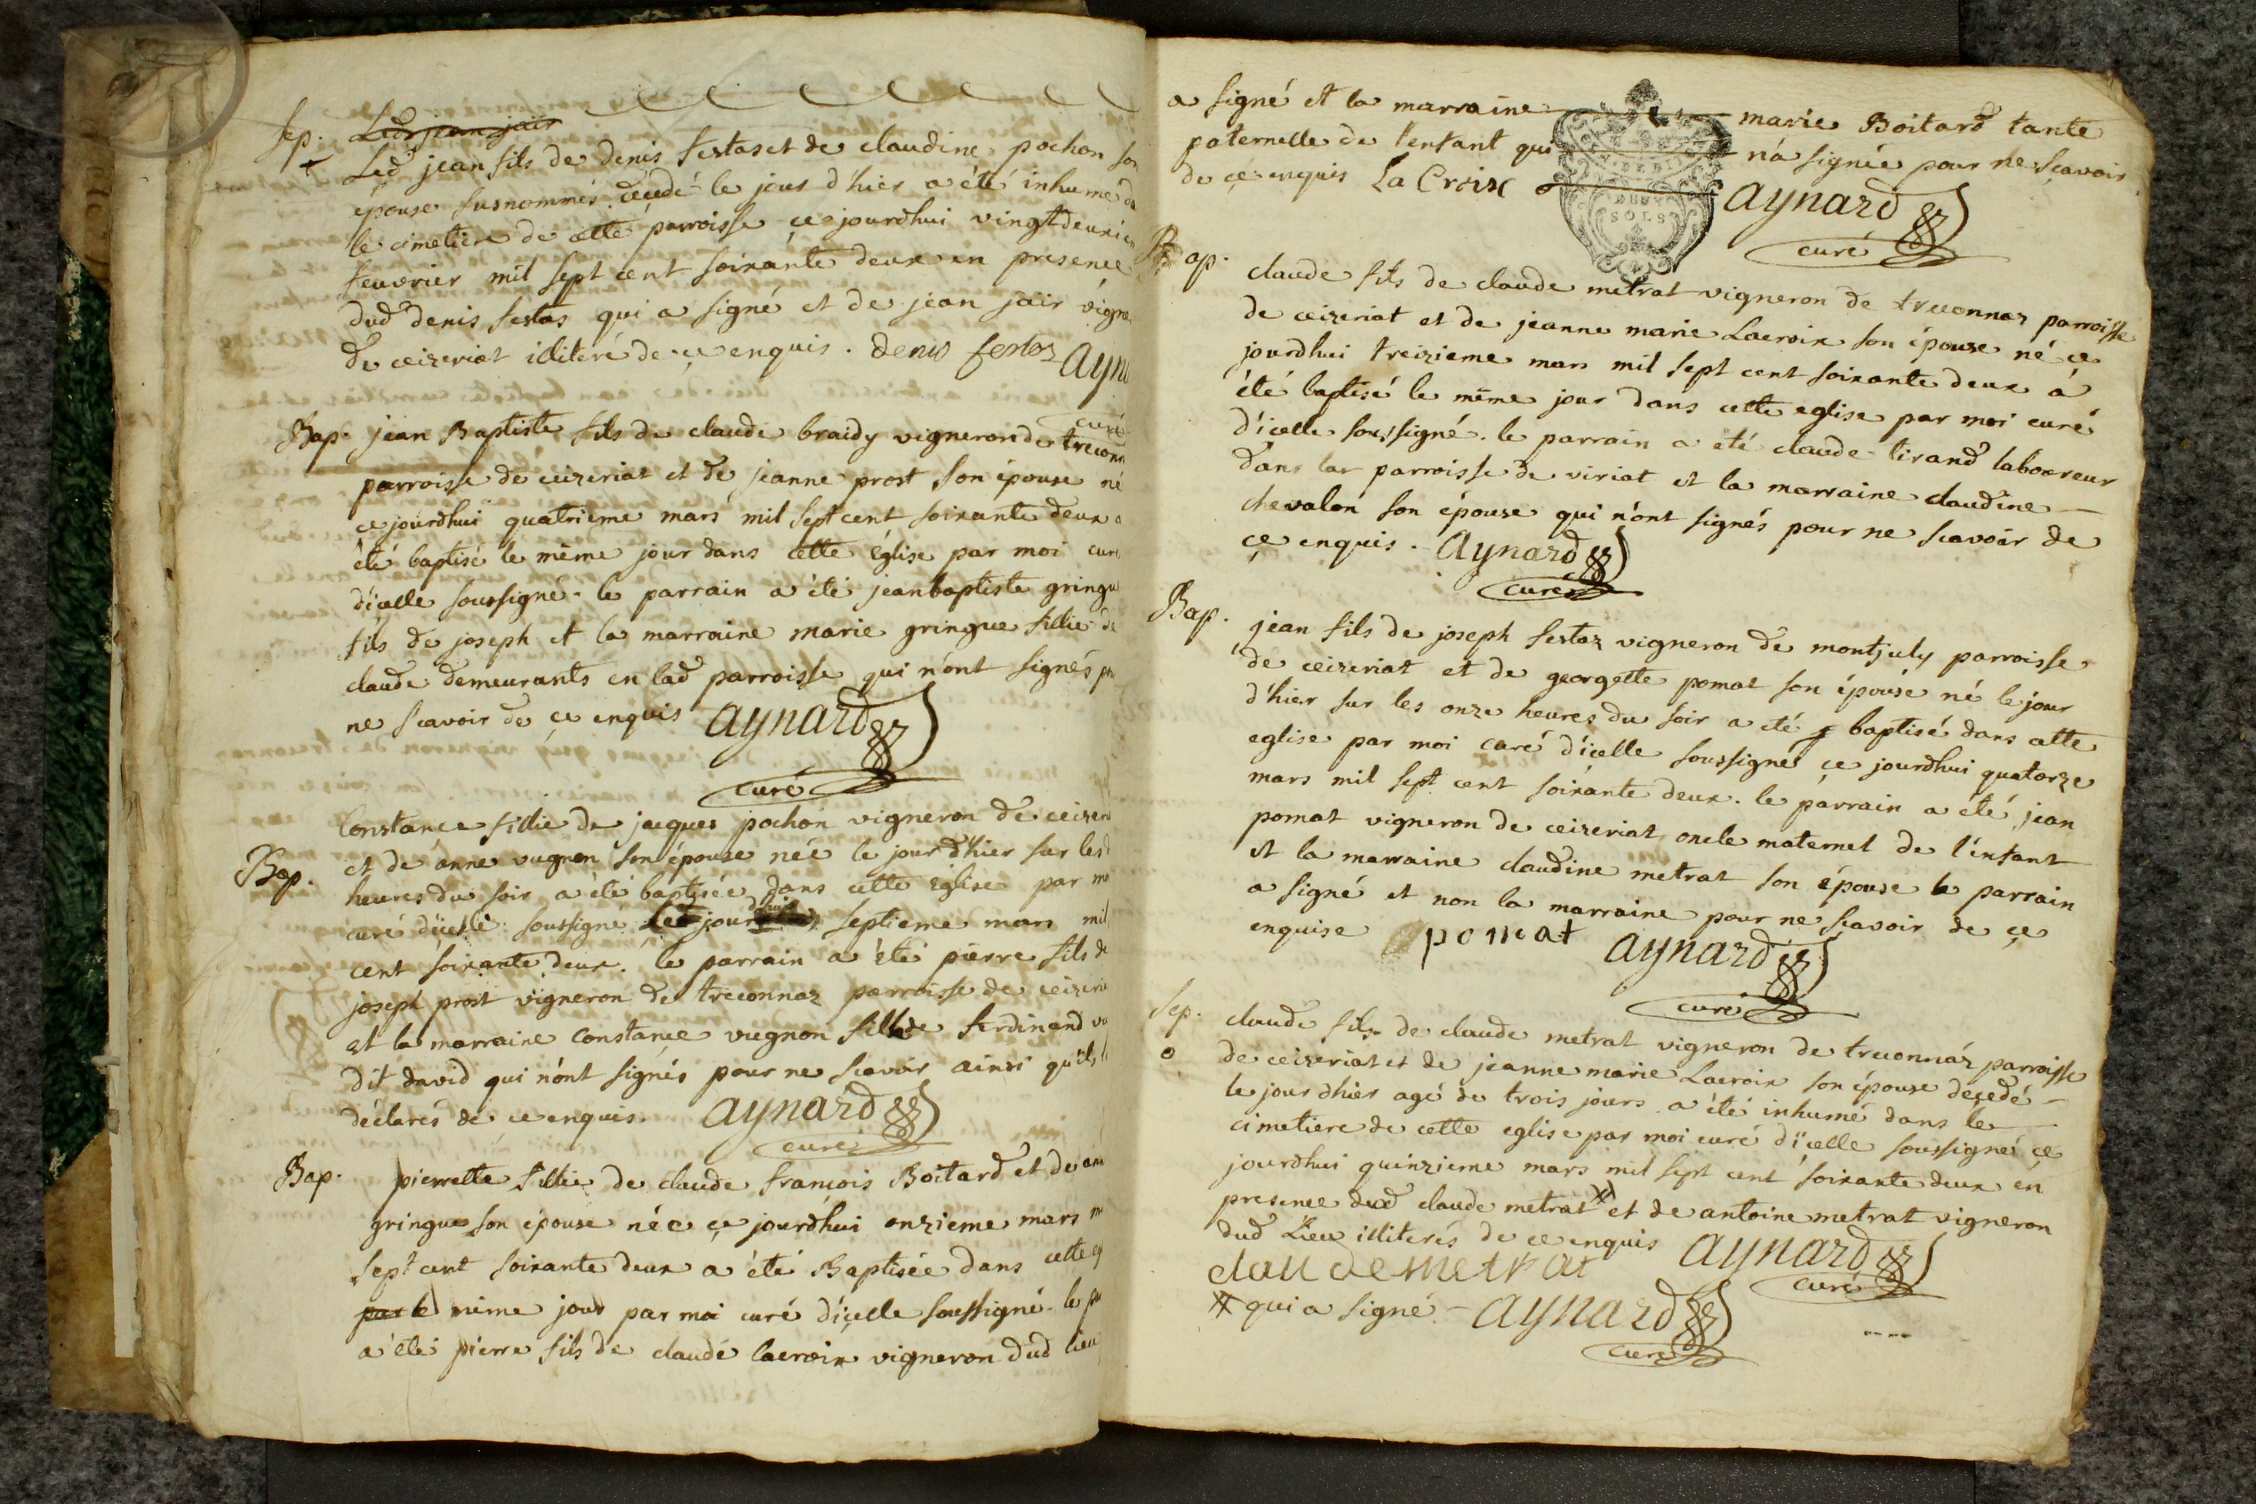 Sep.
Led jean jair
Led jean fils de denis festas et de claudine pochon son
épouse susnommés décédé le jour d'hier a été inhumé d
le cimetiere de cette parroisse ce jourdhui vingtdeuxi
feuvrier mil sept cent soixante deux en presence
dud denis festas qui a signé et de jean jair vigne
de ceizeriat illiteré de ce enquis. denis festaz Ayn
curé
Bap. jean Baptiste fils de claude braidy vigneron de treconn
parroisse de ceizeriat et de jeanne prost son épouse né
ce jourdhui quatrieme mars mil sept cent soixante deux a
été baptisé le même jour dans cette église par moi curé
d'icelle soussigné. le parrain a été jeanbaptiste gringu
fils de joseph et la marraine marie gringue fillie de
claude demeurants en lad parroisse qui n'ont signés p
ne scavoir de ce enquis Aynard
curé
Bap.
Constance fillie de jacques pochon vigneron de ceizeri
et de anne vugnon son épouse née le jour d'hier sur les
heures du soir a été baptisée dans cette eglise par m
curé d'icelle soussigné jour septieme mars mil
cent soixante deux. le parrain a été pierre fils de
joseph prost vigneron de treconnaz parroisse de ceizeri
et la marraine constance vugnon fille de ferdinand vu
dit david qui n'ont signés pour ne scavoir ainsi qu'ils
déclarés de ce enquis. Aynard
curé
Bap. pierrette fillie de claude francois Boitard et de an
gringue son épouse née ce jourdhui onzieme mars m
sept cent soixante deux a été Baptisée dans cette eg
par le même jour par moi curé d'icelle soussigné. le pa
a été pierre fils de claude lacroix vigneron dud lieu
a signé et la marraine marie Boitard tante
paternelle de l'enfant qui n'a signée pour ne sçavoir
de ce enquis La Croix Aynard
curé
SOLS
Bap. claude fils de claude metrat vigneron de treconnaz parroisse
de ceizeriat et de jeanne marie Lacroix son épouse né ce
jourdhui treizieme mars mil sept cent soixante deux à
été baptisé le même jour dans cette eglise par moi curé
d'icelle soussigné. le parrain a été claude tirand laboureur
dans lar parroisse de viriat et la marraine claudine
chevalon son épouse qui n'ont signés pour ne scavoir de
ce enquis. Aynard
curé
Bap. jean fils de joseph festaz vigneron de montjuly parroisse
de ceizeriat et de georgette pomat son épouse né le jour
d'hier sur les onze heures du soir a été baptisé dans cette
eglise par moi curé d'icelle soussigné ce jourdhui quatorze
mars mil sept cent soixante deux. le parrain a été jean
pomat vigneron de ceizeriat oncle maternel de l'enfant
et la marraine claudine metrat son épouse le parrain
a signé et non la marraine pour ne scavoir de ce
enquise pomat Aynard
curé
Sep. claude fils de claude metrat vigneron de treconnaz parroisse
de ceizeriat et de jeanne marie Lacroix son épouse decedé
le jour dhier agé de trois jours a été inhumé dans le
cimetiere de cette eglise par moi curé d'icelle soussigné ce
jourdhui quinzieme mars mil sept cent soixante deux en
presence dud claude metrat # et de antoine metrat vigneron
dud Lieu illiterés de ce enquis Aynard
curé
claude metrat
# qui a signé. Aynard
curé